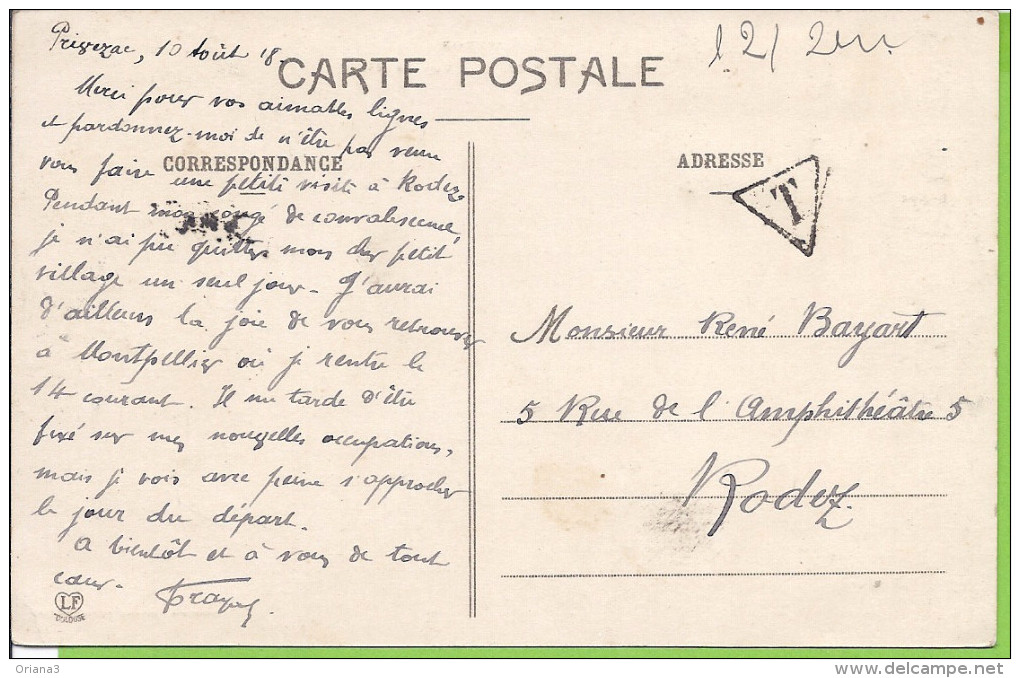 Privezac, 10 Août 18.
12/
CARTE POSTALE
Merci pour vos aimables lignes
et pardonnez-moi de n'être pas venu
vous faire une petite visite à Rodez
CORRESPONDANCE
ADRESSE
T
Pendant mon congé de convalescence,
je n'ai pu quitter mon cher petit
village un seul jour. J'aurai
d'ailleurs la joie de vous retrouver
à Montpellier où je rentre le
14 courant. Il me tarde d'être
fixé sur mes nouvelles occupations,
mais je vois avec peine s'approcher
le jour du départ.
A bientôt et à vous de tout
cœur.
Monsieur René Bayart
5 Rue de l'Amphithéâtre 5
Rodez.
LF
TOULOUSE
Oriana3
www.delcampe.net